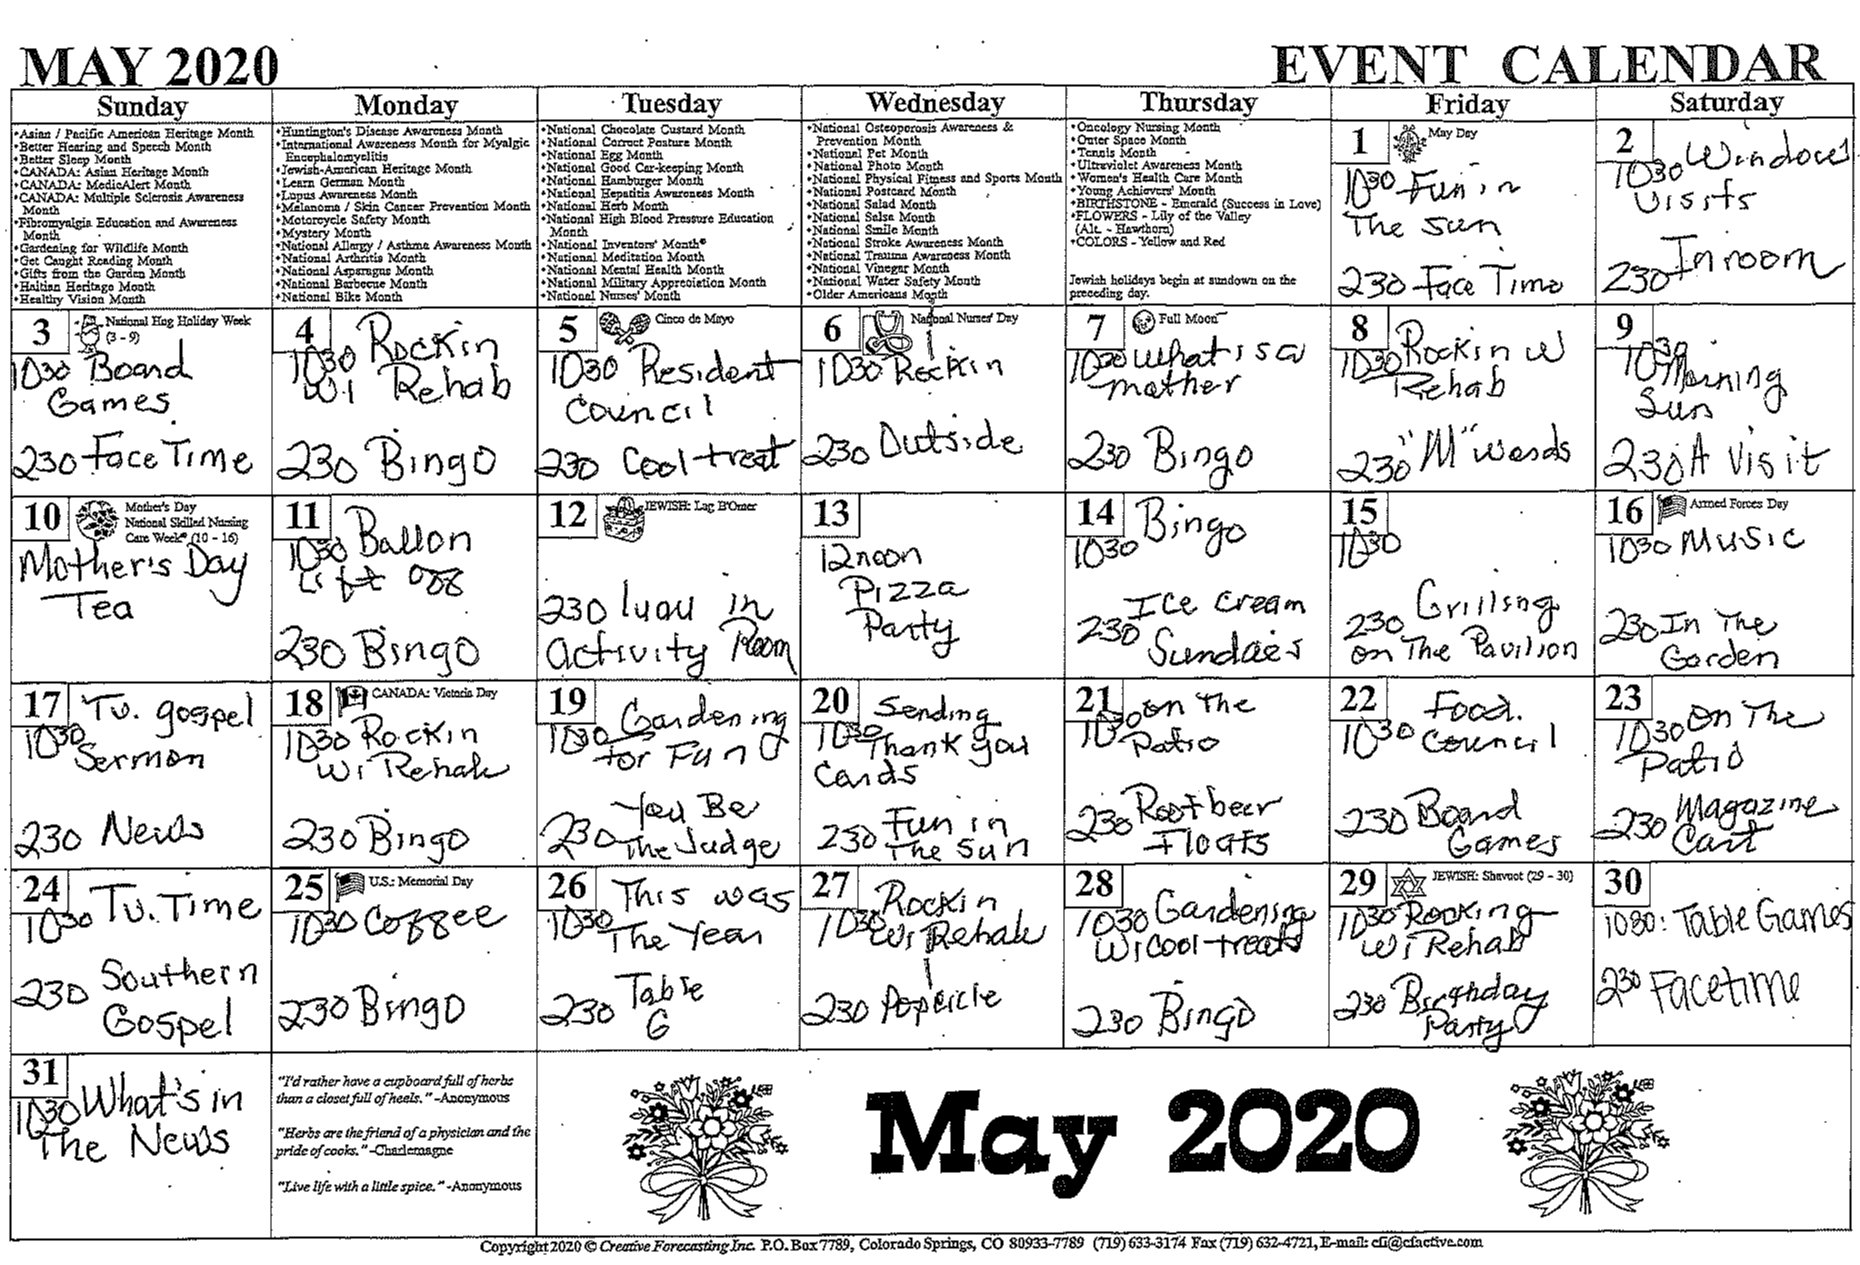 MAY 2020
EVENT CALENDAR
Sunday
Monday
Tuesday
Wednesday
Thursday
Friday
Saturday
•Asian / Pacific American Heritage Month
•Better Hearing and Speech Month
•Better Sleep Month
•CANADA: Asian Heritage Month
•CANADA: MedicAlert Month
•CANADA: Multiple Sclerosis Awareness
Month
•Fibromyalgia Education and Awareness
Month
•Gardening for Wildlife Month
•Get Caught Reading Month
•Gifts from the Garden Month
•Haitian Heritage Month
•Healthy Vision Month
•Huntington's Disease Awareness Month
•International Awareness Month for Myalgic
Encephalomyelitis
•Jewish-American Heritage Month
•Learn German Month
•Lupus Awareness Month
•Melanoma / Skin Cancer Prevention Month
•Motorcycle Safety Month
•Mystery Month
•National Allergy / Asthma Awareness Month
•National Arthritis Month
•National Asparagus Month
•National Barbecue Month
•National Bike Month
•National Chocolate Custard Month
•National Correct Posture Month
•National Egg Month
•National Good Car-keeping Month
•National Hamburger Month
•National Hepatitis Awareness Month
•National Herb Month
•National High Blood Pressure Education
Month
•National Inventors' Month®
•National Meditation Month
•National Mental Health Month
•National Military Appreciation Month
•National Nurses' Month
•National Osteoporosis Awareness &
Prevention Month
•National Pet Month
•National Photo Month
•National Physical Fitness and Sports Month
•National Postcard Month
•National Salad Month
•National Salsa Month
•National Smile Month
•National Stroke Awareness Month
•National Trauma Awareness Month
•National Vinegar Month
•National Water Safety Month
•Older Americans Month
•Oncology Nursing Month
•Outer Space Month
•Tennis Month
•Ultraviolet Awareness Month
•Women's Health Care Month
•Young Achievers' Month
•BIRTHSTONE - Emerald (Success in Love)
•FLOWERS - Lily of the Valley
(Alt. - Hawthorn)
•COLORS - Yellow and Red
Jewish holidays begin at sundown on the
preceding day.
1 May Day
1030 Fun in
The sun
230 Face Time
2
1030 Windows
Visits
230 In room
3 National Hug Holiday Week
(3 - 9)
1030 Board
Games
230 Face Time
4
1030 Rockin
W/ Rehab
230 Bingo
5 Cinco de Mayo
1030 Resident
Council
230 Cool treat
6 National Nurses' Day
1030 Rockin
230 Outside
7 Full Moon
1030 What is a
mother
230 Bingo
8
1030 Rockin W
Rehab
230 "M" words
9
1030 Morning
Sun
230 A Visit
10 Mother's Day
National Skilled Nursing
Care Week® (10 - 16)
Mother's Day
Tea
11
1030 Ballon
Lift off
230 Bingo
12 JEWISH: Lag B'Omer
230 luau in
activity Room
13
12noon
Pizza
Party
14 Bingo
1030
230 Ice cream
Sundaes
15
1030
230 Grilling
on The Pavilion
16 Armed Forces Day
1030 Music
230 In The
Garden
17 Tv. gospel
1030 Sermon
230 News
18 CANADA: Victoria Day
1030 Rockin
W/ Rehab
230 Bingo
19
1030 Gardening
for Fun
230 You Be
The Judge
20 Sending
1030 Thank you
Cards
230 Fun in
The Sun
21
1030 on The
Patio
230 Rootbeer
Floats
22 Food.
1030 Council
230 Board
Games
23
1030 On The
Patio
230 Magazine
Cart
24
1030 Tv. Time
230 Southern
Gospel
25 U.S.: Memorial Day
1030 Coffee
230 Bingo
26 This was
1030 The Year
230 Table
G
27 Rockin
1030 W/ Rehab
230 Popcicle
28
1030 Gardening
W/ Cool treats
230 Bingo
29 JEWISH: Shavuot (29 - 30)
1030 Rocking
W/ Rehab
230 Birthday
Party
30
1030: Table Games
230 Facetime
31
1030 What's in
The News
"I'd rather have a cupboard full of herbs
than a closet full of heels." -Anonymous
"Herbs are the friend of a physician and the
pride of cooks." -Charlemagne
"Live life with a little spice." -Anonymous
May 2020
Copyright 2020 © Creative Forecasting Inc. P.O. Box 7789, Colorado Springs, CO 80933-7789 (719) 633-3174 Fax (719) 632-4721, E-mail: cfi@cfactive.com